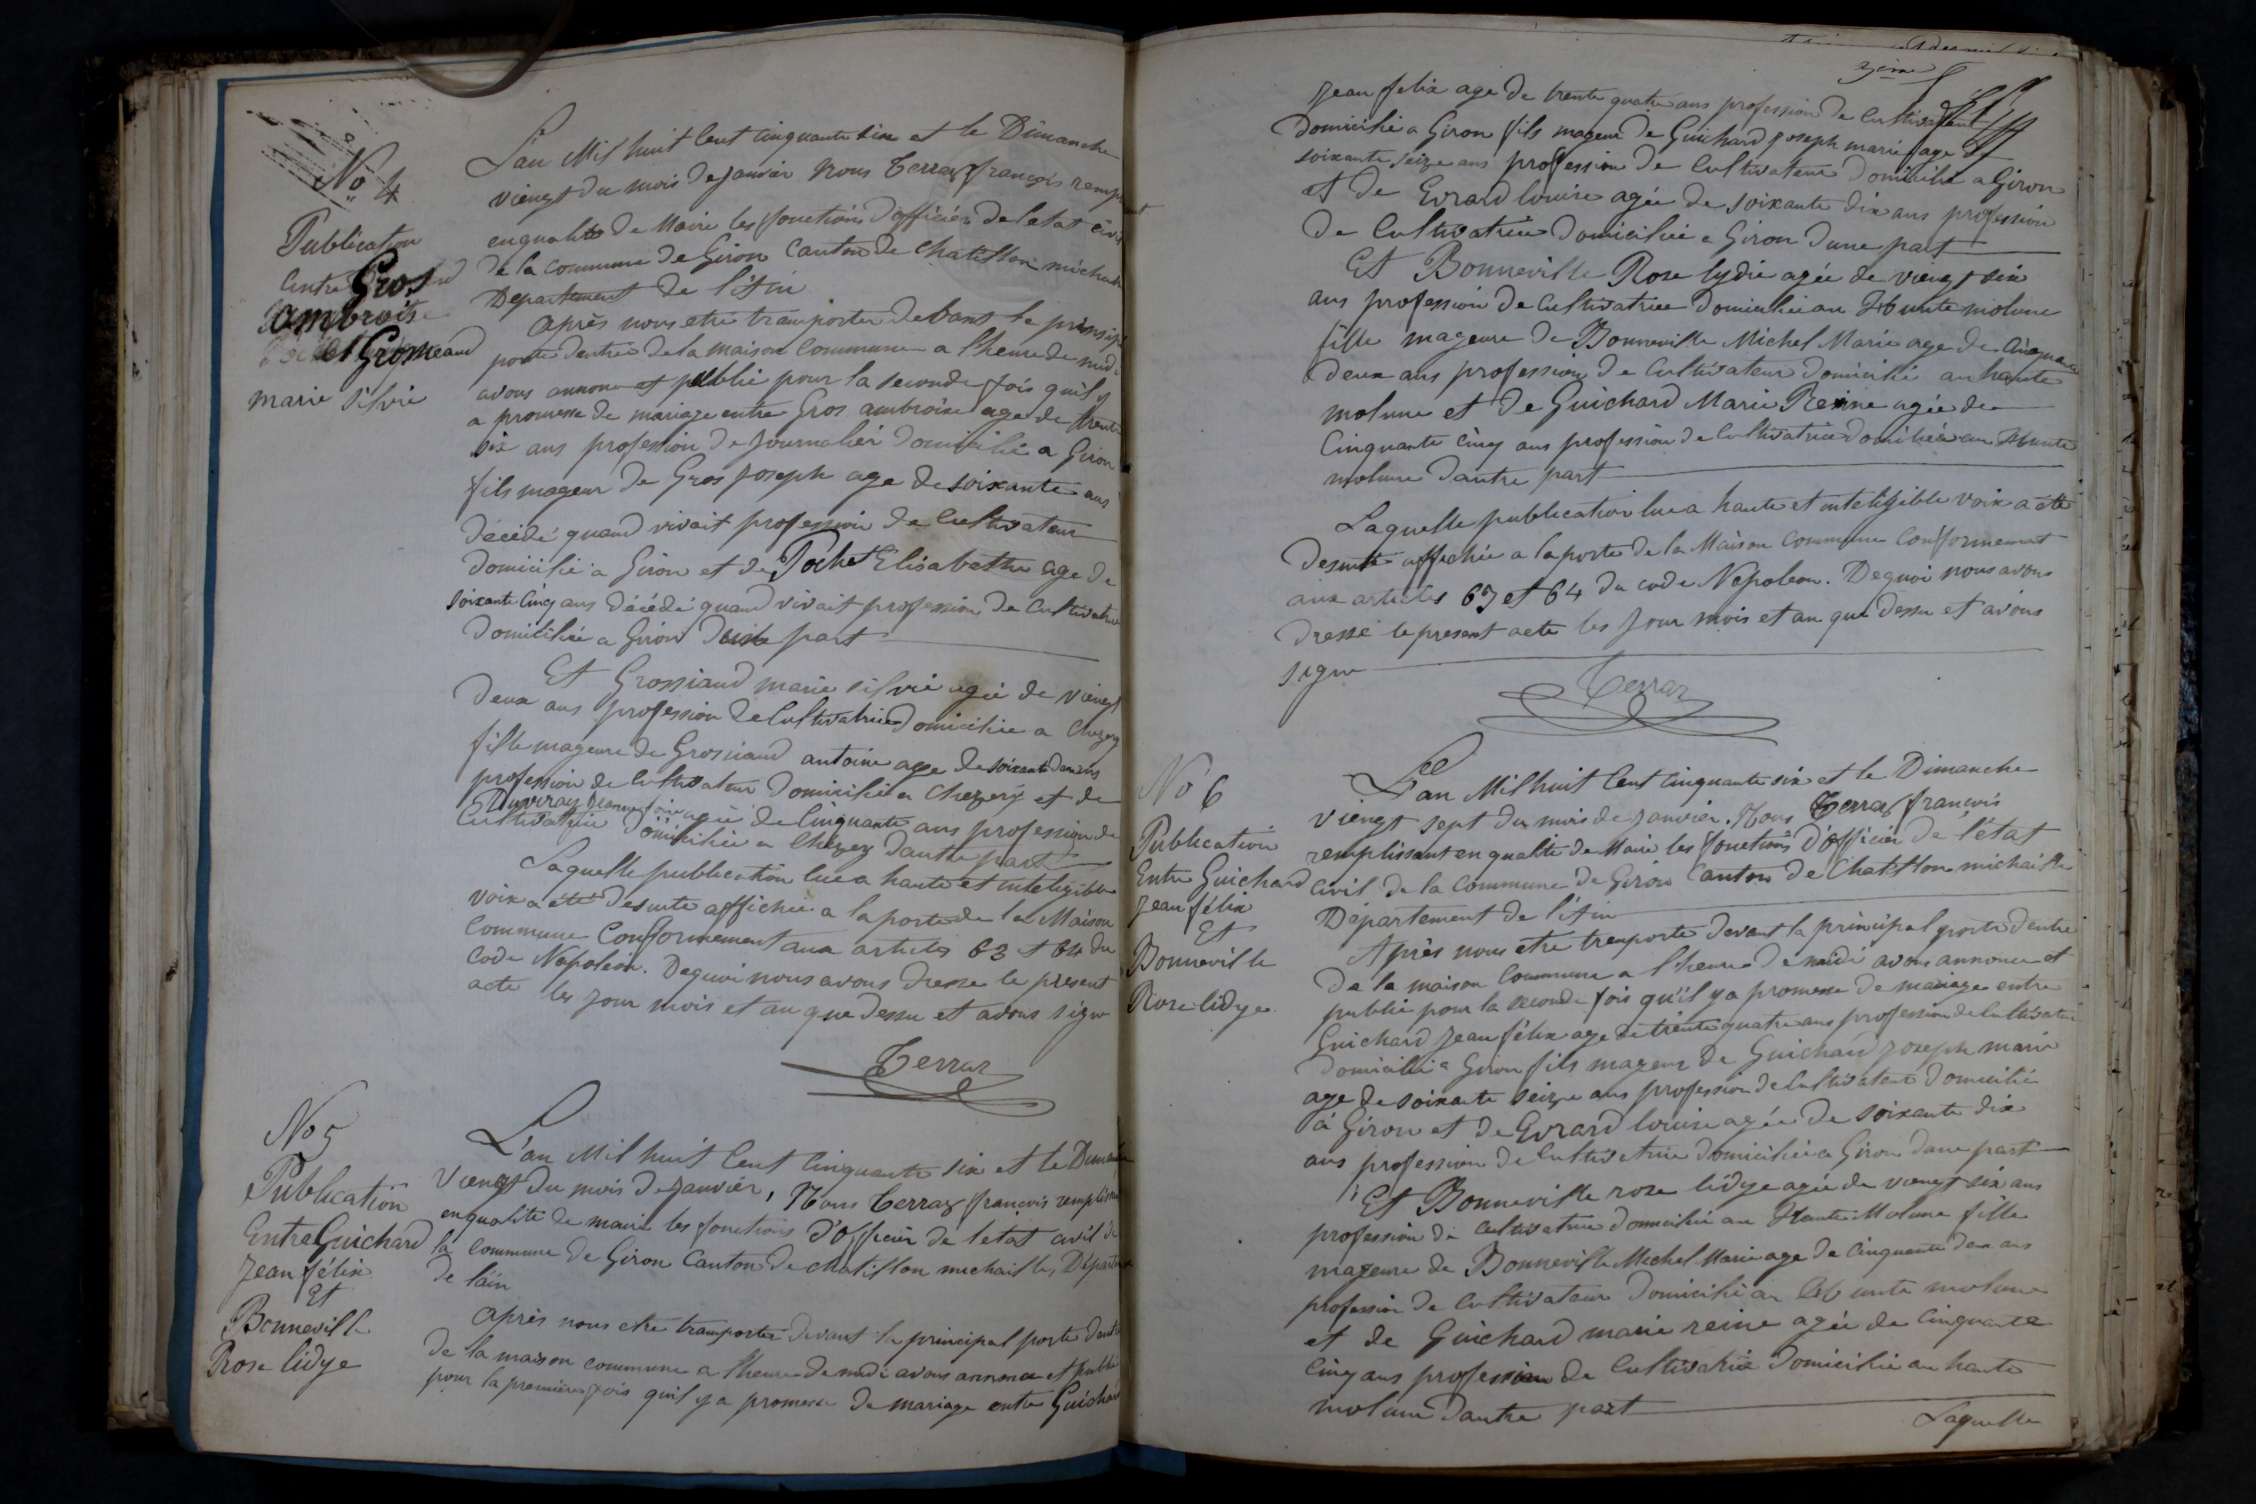 No 4
Publication
Entre Gros
ambroise
et Grossiaud
marie silvie
L'an Mil huit Cent Cinquante six et le Dimanche
viengt du mois de Janvier Nous Terraz françois
enqualité de Maire les fonctions d'officier de l'etat civil
de la Commune de Giron Canton de Chatillon michaille
Departement de l'Ain
après nous etre transporter devant le principal
porte dentrée de la maison Commune a lheure de midi
avons annoncé et publié pour la seconde fois quil y
a promesse de mariage entre Gros ambroise age de trente
six ans profession de Journalier domicilié a Giron
fils mageur de Gros Joseph age de soixante ans
décédé quand vivait profession de Cultivateur
domicilié a Giron et de Pochet Elisabethe age de
soixante Cinq ans décédé quand vivait profession de Cultivatrice
domiciliée a Giron dune part
Et Grossiaud marie silvie agée de viengt
deux ans profession de Cultivatrice domiciliée a Chezery
fille mageure de Grossiaud antoine age de soixante
profession de Cultivateur domicilié a Chezery et de
agée de Cinquante ans profession de
Cultivatrice domiciliée a Chezery dautre part
Laquelle publication lue a haute et inteligible
voix a été desuite affichée a la porte de la Maison
Commune Conformement aux articles 63 et 64 du
Code Napoléon. Dequoi nous avons dressé le present
acte les Jour mois et an que dessu et avons signé
Terraz
No 5
Publication
Entre Guichard
Jean félix
Et
Bonneville
Rose lidye
L'an Mil huit Cent Cinquante six et le Dimanche
viengt du mois de Janvier, Nous Terraz françois
enqualité de maire les fonctions d'officier de letat civil de
la Commune de Giron Canton de chatillon michaille, Départ
de lain
après nous etre transporter devant la principal porte dentré
de la maison commune a lheure de midi avons annoncé et publié
pour la premiere fois quil y a promesse de mariage entre Guichard
3ème
Jean felix age de trente quatre ans profession de Cultivateur
domicilié a Giron fils mageur de Guichard Joseph marie age de
soixante seize ans profession de Cultivateur domicilié a Giron
et de Evrard louise agée de soixante dix ans profession
de Cultivatrice domiciliée a Giron dune part
Et Bonneville Rose lydie agée de viengt six
ans profession de Cultivatrice domiciliée au Haute molune
fille mageure de Bonneville Michel Marie age de Cinquante
deux ans profession de Cultivateur domicilié au haute
molune et de Guichard Marie Reine agée de
Cinquante Cinq ans profession de Cultivatrice domiciliée au Haute
molune dautre part
Laquelle publication lue a haute et inteligible voix a été
desuite affichée a la porte de la Maison Commune Conformement
aux articles 63 et 64 du code Napoleon. Dequoi nous avons
dressé le present acte les Jour mois et an que dessu et avons
signé
Terraz
No 6
Publication
Entre Guichard
Jean félix
Et
Bonneville
Rose lidye
L'an Mil huit Cent Cinquante six et le Dimanche
viengt sept du mois de Janvier. Nous Terraz françois
remplissant en qualité de Maire les fonctions d'officier de l'état
civil de la Commune de Giron Canton de Chatillon michaille
Département de l'Ain
Après nous etre transporté devant la principal porte dentré
de la maison Commune a l'heure de midi avons annoncé et
publié pour la seconde fois qu'il y a promesse de mariage entre
Guichard Jean félix age de trente quatre ans profession de Cultivateur
domicilié a Giron fils mageur de Guichard Joseph marie
age de soixante seize ans profession de Cultivateur domicilié
à Giron et de Evrard louise agée de soixante dix
ans profession de Cultivatrice domiciliée a Giron dune part
Et Bonneville rose lidye agée de viengt six ans
profession de cultivatrice domiciliée au Haute Molune fille
mageure de Bonneville Michel Marie age de Cinquante deux ans
profession de Cultivateur domicilié au haute molune
et de Guichard marie reine agée de Cinquante
Cinq ans profession de Cultivatrice domiciliée au haute
molune dautre part
Laquelle